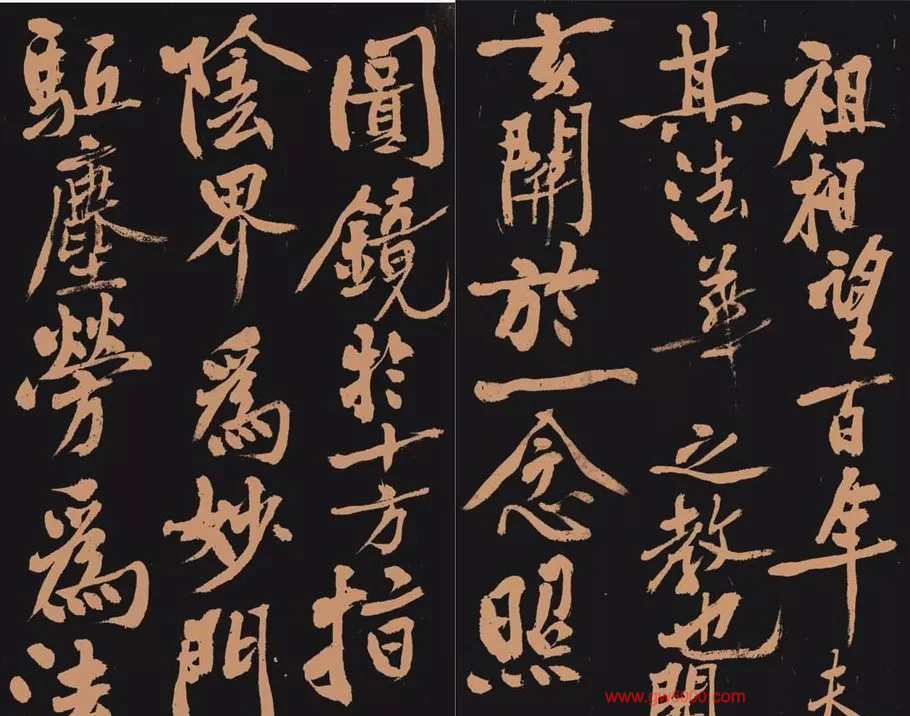 祖相望百年
其法華之教也開
玄關於一念照
圓鏡於十方指
陰界爲妙門
駈塵勞爲法